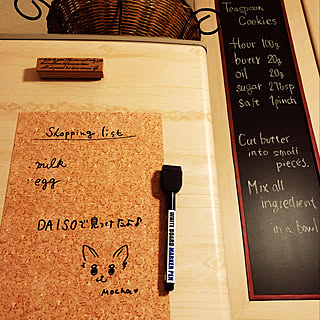 Shopping list
milk
egg
DAISOで見つけたよ♪
Mocha♥
WHITE BOARD MARKER PEN
Teaspoon
Cookies
flour 100g
butter 20g
oil 20g
sugar 2tbsp
salt 1pinch
Cut butter
into small
pieces.
Mix all
ingredient
in a bowl